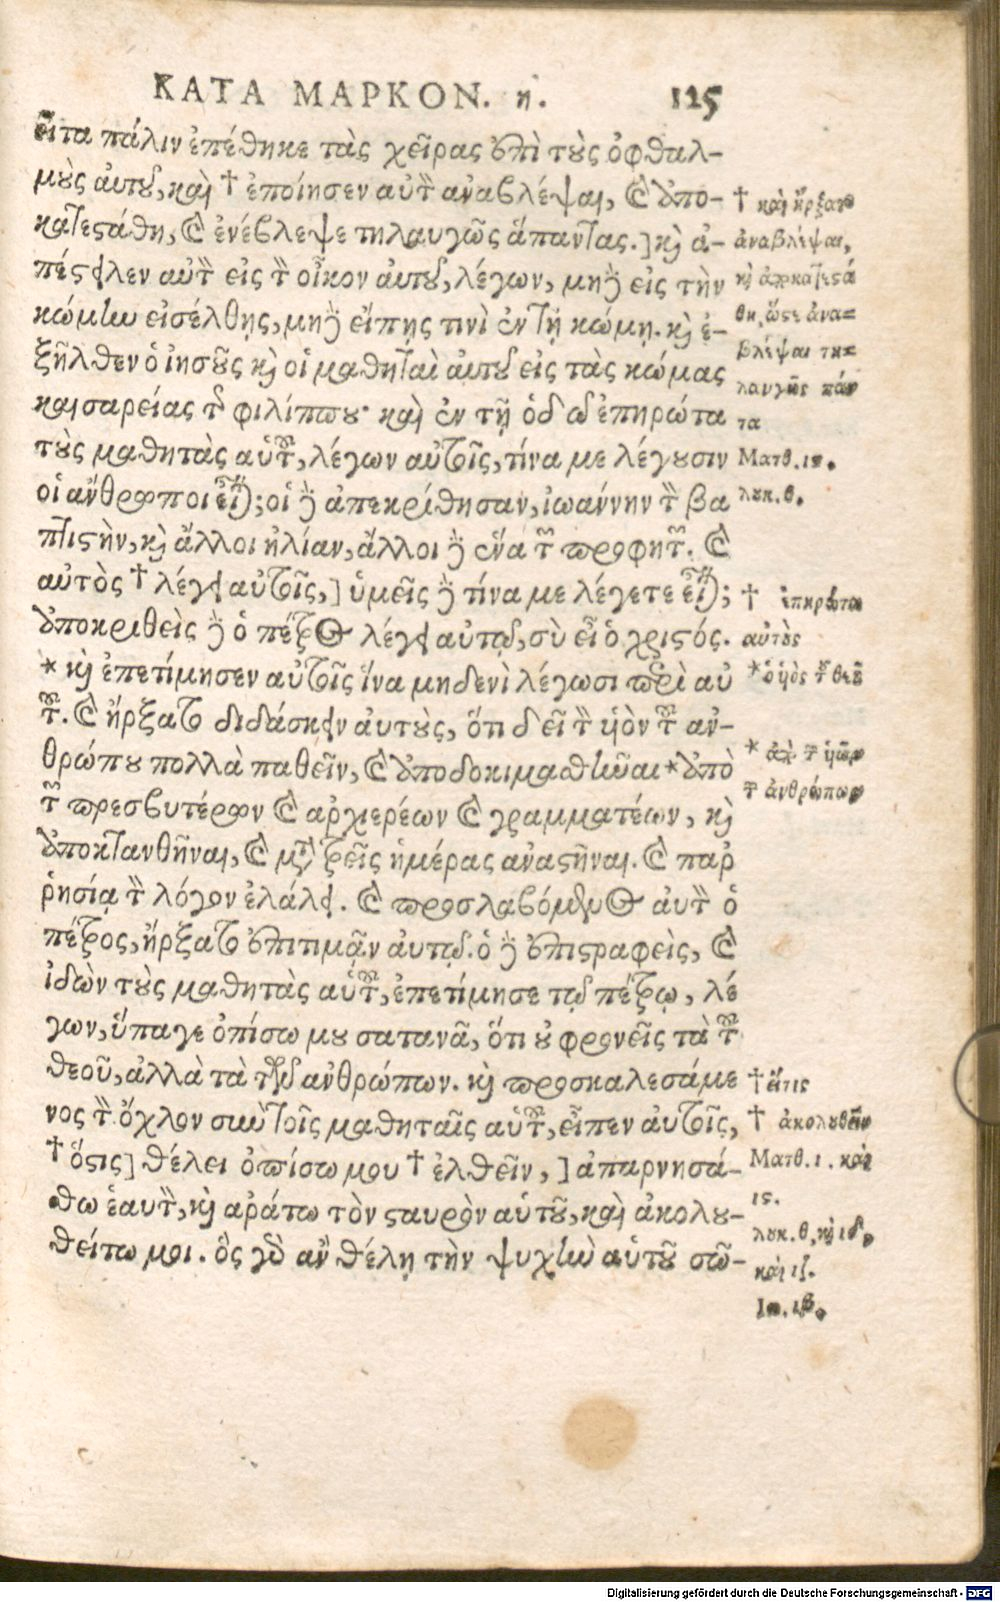 ΚΑΤΑ ΜΑΡΚΟΝ. η. 125
εἶτα πάλιν ἐπέθηκε τὰς χεῖρας ἐπὶ τοὺς ὀφθαλ-
μοὺς αὐτοῦ, καὶ † ἐποίησεν αὐτὸν ἀναβλέψαι, καὶ ἀπο-
κατεστάθη, καὶ ἐνέβλεψε τηλαυγῶς ἅπαντας.] καὶ ἀ-
πέστειλεν αὐτὸν εἰς τὸν οἶκον αὐτοῦ, λέγων, μηδὲ εἰς τὴν
κώμην εἰσέλθῃς, μηδὲ εἴπῃς τινὶ ἐν τῇ κώμῃ. καὶ ἐ-
ξῆλθεν ὁ ἰησοῦς καὶ οἱ μαθηταὶ αὐτοῦ εἰς τὰς κώμας
καισαρείας τῆς φιλίππου· καὶ ἐν τῇ ὁδῷ ἐπηρώτα
τοὺς μαθητὰς αὑτοῦ, λέγων αὐτοῖς, τίνα με λέγουσιν
οἱ ἄνθρωποι εἶναι; οἱ δὲ ἀπεκρίθησαν, ἰωάννην τὸν βα
πτιστὴν, καὶ ἄλλοι ἠλίαν, ἄλλοι δὲ ἕνα τῶν προφητῶν. καὶ
αὐτὸς † λέγει αὐτοῖς,] ὑμεῖς δὲ τίνα με λέγετε εἶναι;
ἀποκριθεὶς δὲ ὁ πέτρος λέγει αὐτῷ, σὺ εἶ ὁ χριστός.
* καὶ ἐπετίμησεν αὐτοῖς ἵνα μηδενὶ λέγωσι περὶ αὐ
τοῦ. καὶ ἤρξατο διδάσκειν αὐτοὺς, ὅτι δεῖ τὸν υἱὸν τοῦ ἀν-
θρώπου πολλὰ παθεῖν, καὶ ἀποδοκιμασθῆναι * ἀπὸ
τῶν πρεσβυτέρων καὶ ἀρχιερέων καὶ γραμματέων, καὶ
ἀποκτανθῆναι, καὶ μετὰ τρεῖς ἡμέρας ἀναστῆναι. καὶ παρ
ῥησίᾳ τὸν λόγον ἐλάλει. καὶ προσλαβόμενος αὐτὸν ὁ
πέτρος, ἤρξατο ἐπιτιμᾷν αὐτῷ. ὁ δὲ ἐπιστραφεὶς, καὶ
ἰδὼν τοὺς μαθητὰς αὑτοῦ, ἐπετίμησε τῷ πέτρῳ, λέ
γων, ὕπαγε ὀπίσω μου σατανᾶ, ὅτι οὐ φρονεῖς τὰ τοῦ
θεοῦ, ἀλλὰ τὰ τῶν ἀνθρώπων. καὶ προσκαλεσάμε
νος τὸν ὄχλον σὺν τοῖς μαθηταῖς αὑτοῦ, εἶπεν αὐτοῖς,
† ὅστις] θέλει ὀπίσω μου † ἐλθεῖν,] ἀπαρνησά-
σθω ἑαυτὸν, καὶ ἀράτω τὸν σταυρὸν αὑτοῦ, καὶ ἀκολου-
θείτω μοι. ὃς γὰρ ἂν θέλῃ τὴν ψυχὴν αὑτοῦ σῶ-
† καὶ ἤρξατο
ἀναβλέψαι,
καὶ ἀποκατεστά
θη, ὥστε ἀνα=
βλέψαι τη=
λαυγῶς πάν
τα
Ματθ. ις.
λουκ. θ.
† ἐπηρώτα
αὐτοὺς
* ὁ υἱὸς τοῦ θεοῦ
τῶν ἀνθρώπων
† εἴτις
† ἀκολουθεῖν
Ματθ. ι. καὶ
ις.
λουκ. θ, καὶ ιδ,
καὶ ιζ.
Ιω. ιβ,
Digitalisierung gefördert durch die Deutsche Forschungsgemeinschaft - DFG